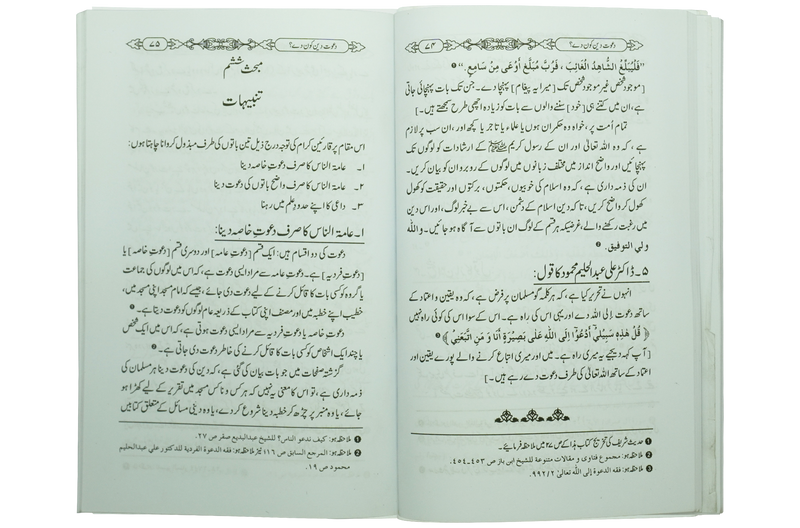 دعوت دین کون دے؟
۷۴
”فَلْيُبَلِّغِ الشَّاهِدُ الْغَائِبَ، فَرُبَّ مُبَلَّغٍ أَوْعَى مِنْ سَامِعٍ.“ ❶
[موجود شخص غیر موجود شخص تک [میرا یہ پیغام] پہنچا دے۔ جن تک بات پہنچائی جاتی
ہے، ان میں کتنے ہی [خود] سننے والوں سے بات کو زیادہ اچھی طرح سمجھتے ہیں۔]
تمام اُمت پر، خواہ وہ حکمران ہوں یا علماء یا تاجر یا کچھ اور، ان سب پر لازم
ہے، کہ وہ اللہ تعالیٰ اور ان کے رسول کریم ﷺ کے ارشادات کو لوگوں تک
پہنچائیں اور واضح انداز میں مختلف زبانوں میں لوگوں کے روبرو ان کو بیان کریں۔
ان کی ذمہ داری ہے، کہ وہ اسلام کی خوبیوں، حکمتوں، برکتوں اور حقیقت کو کھول
کھول کر واضح کریں، تاکہ دین اسلام کے دشمن، اس سے بے خبر لوگ، اور اس دین
میں رغبت رکھنے والے، غرضیکہ ہر قسم کے لوگ ان باتوں سے آگاہ ہو جائیں۔ واللہ
ولي التوفيق. ❷
۵۔ ڈاکٹر علی عبدالحلیم محمود کا قول:
انہوں نے تحریر کیا ہے، کہ ہر کلمہ گو مسلمان پر فرض ہے، کہ وہ یقین و اعتماد کے
ساتھ دعوت إلی اللہ دے اور یہی اس کی راہ ہے۔ اس کے سوا اس کی کوئی راہ نہیں
﴿ قُلْ هٰذِهٖ سَبِيْلِيْٓ اَدْعُوْٓا اِلَى اللّٰهِ عَلٰى بَصِيْرَةٍ اَنَا وَ مَنِ اتَّبَعَنِيْ ﴾ ❸
[آپ کہہ دیجیے یہ میری راہ ہے۔ میں اور میری اتباع کرنے والے پورے یقین اور
اعتماد کے ساتھ اللہ تعالیٰ کی طرف دعوت دے رہے ہیں۔]
❶ حدیث شریف کی تخریج کتاب ہذا کے ص ۲۷ میں ملاحظہ فرمایئے۔
❷ ملاحظہ ہو: مجموع فتاوى و مقالات متنوعة للشيخ ابن باز ص ۴۵۳۔۴۵۴.
❸ ملاحظہ ہو: فقه الدعوة إلى الله تعالىٰ ۹۹۲/۲.
دعوت دین کون دے؟
۷۵
مبحث ششم
تنبیہات
اس مقام پر قارئین کرام کی توجہ درج ذیل تین باتوں کی طرف مبذول کروانا چاہتا ہوں:
۱۔ عامۃ الناس کا صرف دعوتِ خاصہ دینا
۲۔ عامۃ الناس کا صرف واضح باتوں کی دعوت دینا
۳۔ داعی کا اپنے حدودِ علم میں رہنا
۱۔ عامۃ الناس کا صرف دعوتِ خاصہ دینا:
دعوت کی دو اقسام ہیں: ایک قسم [دعوتِ عامہ] اور دوسری قسم [دعوتِ خاصہ] یا
[دعوتِ فردیہ] ہے۔ دعوتِ عامہ سے مراد ایسی دعوت ہے، کہ اس میں لوگوں کی جماعت
یا گروہ کو کسی بات کا قائل کرنے کے لیے دعوت دی جائے، جیسے کہ امام مسجد اپنی مسجد میں،
خطیب اپنے خطبہ میں اور مصنف اپنی کتاب کے ذریعہ عام لوگوں کو دعوت دیتا ہے۔ ❶
دعوتِ خاصہ یا دعوتِ فردیہ سے مراد ایسی دعوت ہوتی ہے، کہ اس میں ایک شخص
یا چند ایک اشخاص کو کسی بات کا قائل کرنے کی خاطر دعوت دی جاتی ہے۔ ❷
گزشتہ صفحات میں جو بات بیان کی گئی ہے، کہ دین کی دعوت دینا ہر مسلمان کی
ذمہ داری ہے، تو اس کا معنی یہ نہیں کہ ہر کس و ناکس مسجد میں تقریر کے لیے کھڑا ہو
جائے، یا وہ منبر پر چڑھ کر خطبہ دینا شروع کر دے، یا وہ دینی مسائل کے متعلق کتابیں
❶ ملاحظہ ہو: كيف ندعو الناس؟ للشيخ عبدالبديع صقر ص ۲۷.
❷ ملاحظہ ہو: المرجع السابق ص ۱۶؛ نیز ملاحظہ ہو: فقه الدعوة الفردية للدكتور علي عبدالحليم
محمود ص ۱۹.